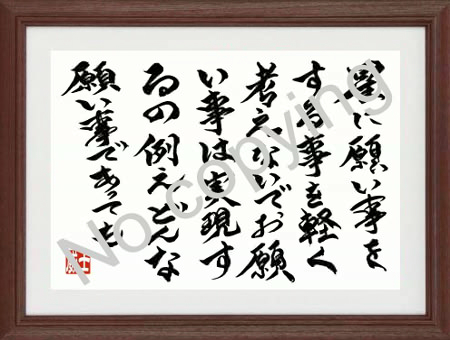 星に願い事を
する事を軽く
考えないでお願
い事は実現す
るの例えどんな
願い事であっても
No copying